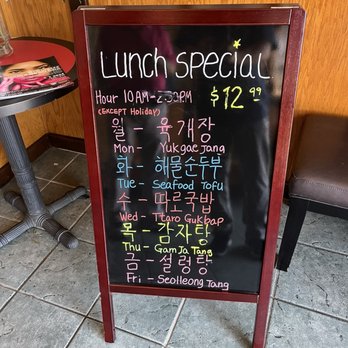 Lunch Special
Hour 10AM-2:30PM $12.99
(EXCEPT Holiday)
월 - 육개장
Mon - Yukgae Jang
화 - 해물순두부
Tue - Seafood Tofu
수 - 따로국밥
Wed - Ttaro Gukbap
목 - 감자탕
Thu - GamJa Tang
금 - 설렁탕
Fri - Seolleong Tang